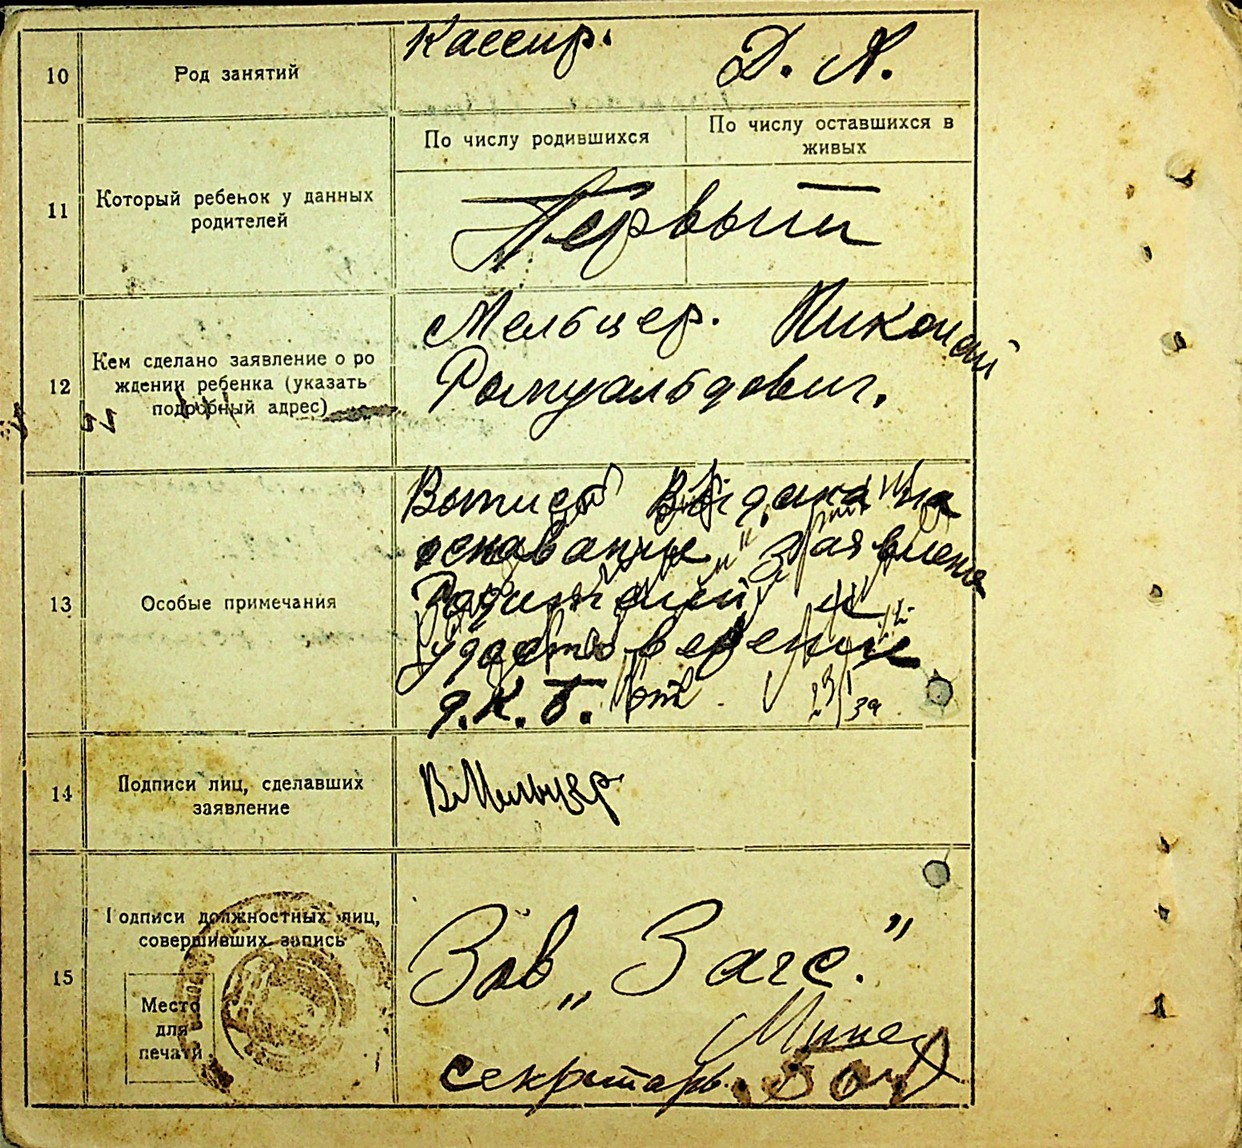 10
Род занятий
Кассир.
Д. Я.
По числу родившихся
По числу оставшихся в
живых
11
Который ребенок у данных
родителей
Первый
12
Кем сделано заявление о ро
ждении ребенка (указать
подробный адрес)
Мельцер. Николай
Ромуальдович.
13
Особые примечания
Выдана на
основание заявлена
Родителей и
удостоверение
д.К.Б. от 23/ 39
14
Подписи лиц, сделавших
заявление
В Мельцер
15
Подписи должностных лиц,
совершивших запись
Место
для
печати
Зав „Загс."
секретарь.